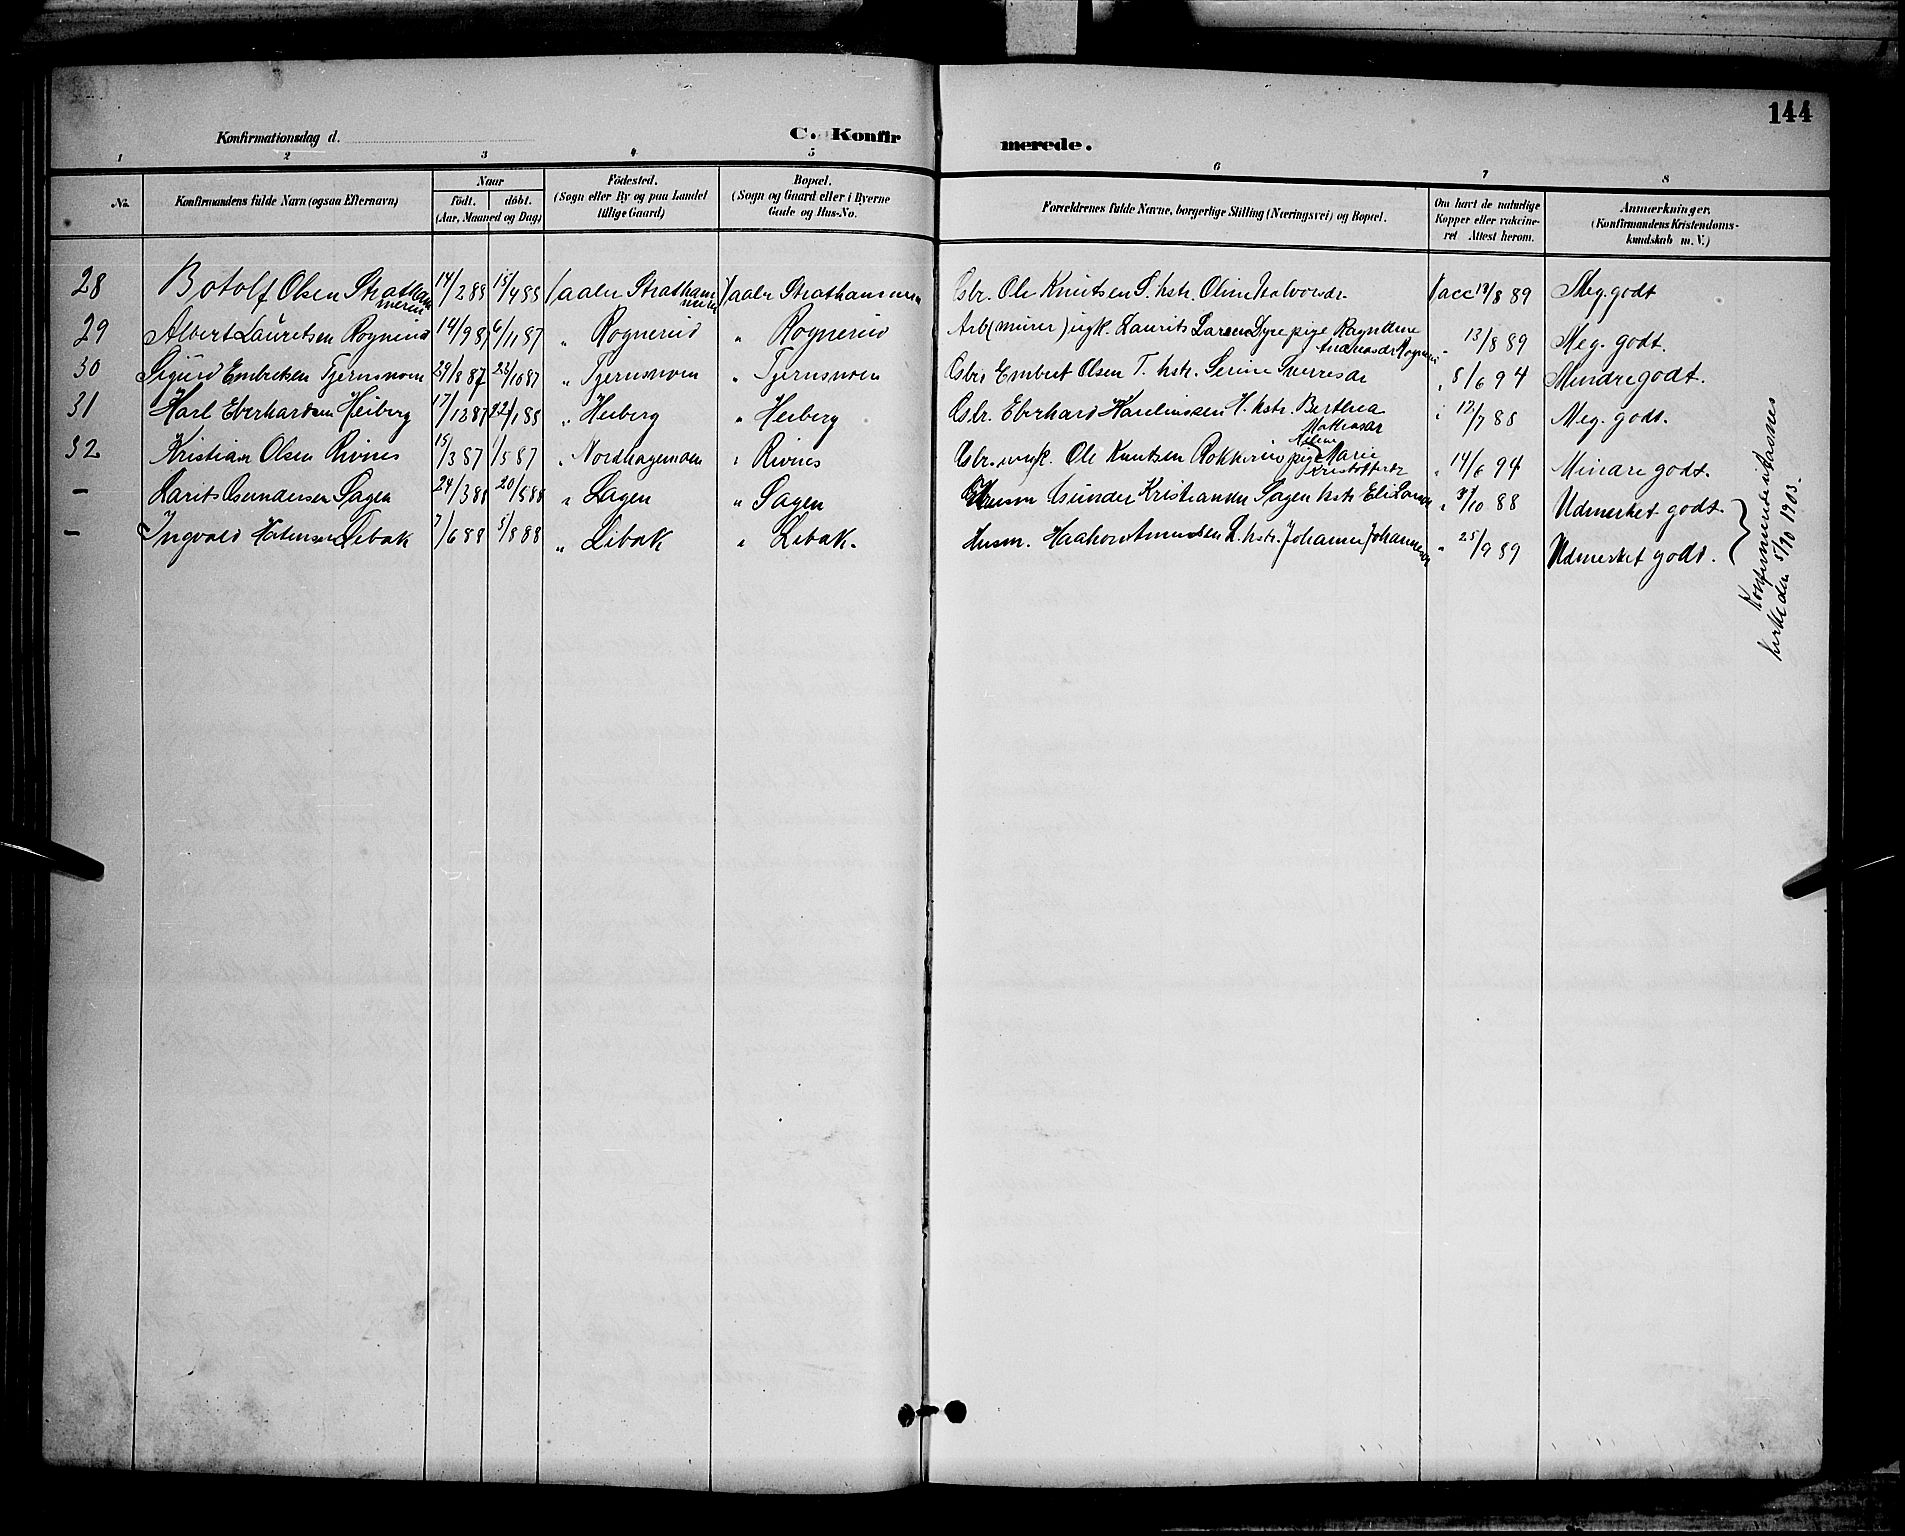 144
Konfirmationsdag d. C. Konfirmerede.
1 2 3 4 5 6 7 8
No. Konfirmandens fulde Navn (ogsaa Efternavn) Naar födt. döbt. (Aar, Maaned og Dag) Födested. (Sogn eller By og paa Landet tillige Gaard) Bopæl. (Sogn og Gaard eller i Byerne Gade og Hus-No. Forældrenes fulde Navne, borgerlige Stilling (Næringsvei) og Bopæl. Om havt de naturlige Kopper eller vakcineret Attest herom. Anmærkninger. (Konfirmandens Kristendomskundskab m. V.)
28 Botolf Olsen Strathammeren 14/2 88 15/4 88 Vaaler Strathammeren Vaaler Strathammeren Gsbr. Ole Knutsen S. hstr. Oline Halvorsdr. Vacc 13/8 89 Meg. godt
29 Albert Lauritsen Rognerud 14/9 87 6/11 87 " Rognerud " Rognerud Arb (murer) ugk. Laurits Larsen Dyre pige Andreasdr Rognerud " 13/8 89 Meg. godt.
30 Sigurd Embretsen Tjernsmoen 29/8 87 23/10 87 " Tjernsmoen " Tjernsmoen Gsbr Embret Olsen T. hstr. Serine Sverresdr " 5/6 94 Mindre godt.
31 Karl Eberhardsen Heiberg 17/12 87 22/1 88 " Heiberg " Heiberg Gsbr. Eberhard Karelinssen H. hstr. Berthea Mathiasdr " 12/7 88 Meg. godt.
32 Kristian Olsen Rivnes 15/3 87 1/5 87 " Nordhagemoen " Rivnes Gsbr. ugk. Ole Knutsen Rokkerud pige Marie Kristoffersdr " 14/6 94 Mindre godt.
— Larits Gundersen Sagen 24/3 88 20/5 88 " Sagen " Sagen Husm Gunder Kristiansen Sagen hstr. Eli Larsen " 3/10 88 Udmerket godt.
— Ingvald Libak 7/6 88 5/8 88 " Libak " Libak. Husm. Haakon Amundsen L. hstr. Johanne Johannesen " 25/9 89 Udmerket godt.
Konfirmerede i Hasnes kirke den 5/10 1903.